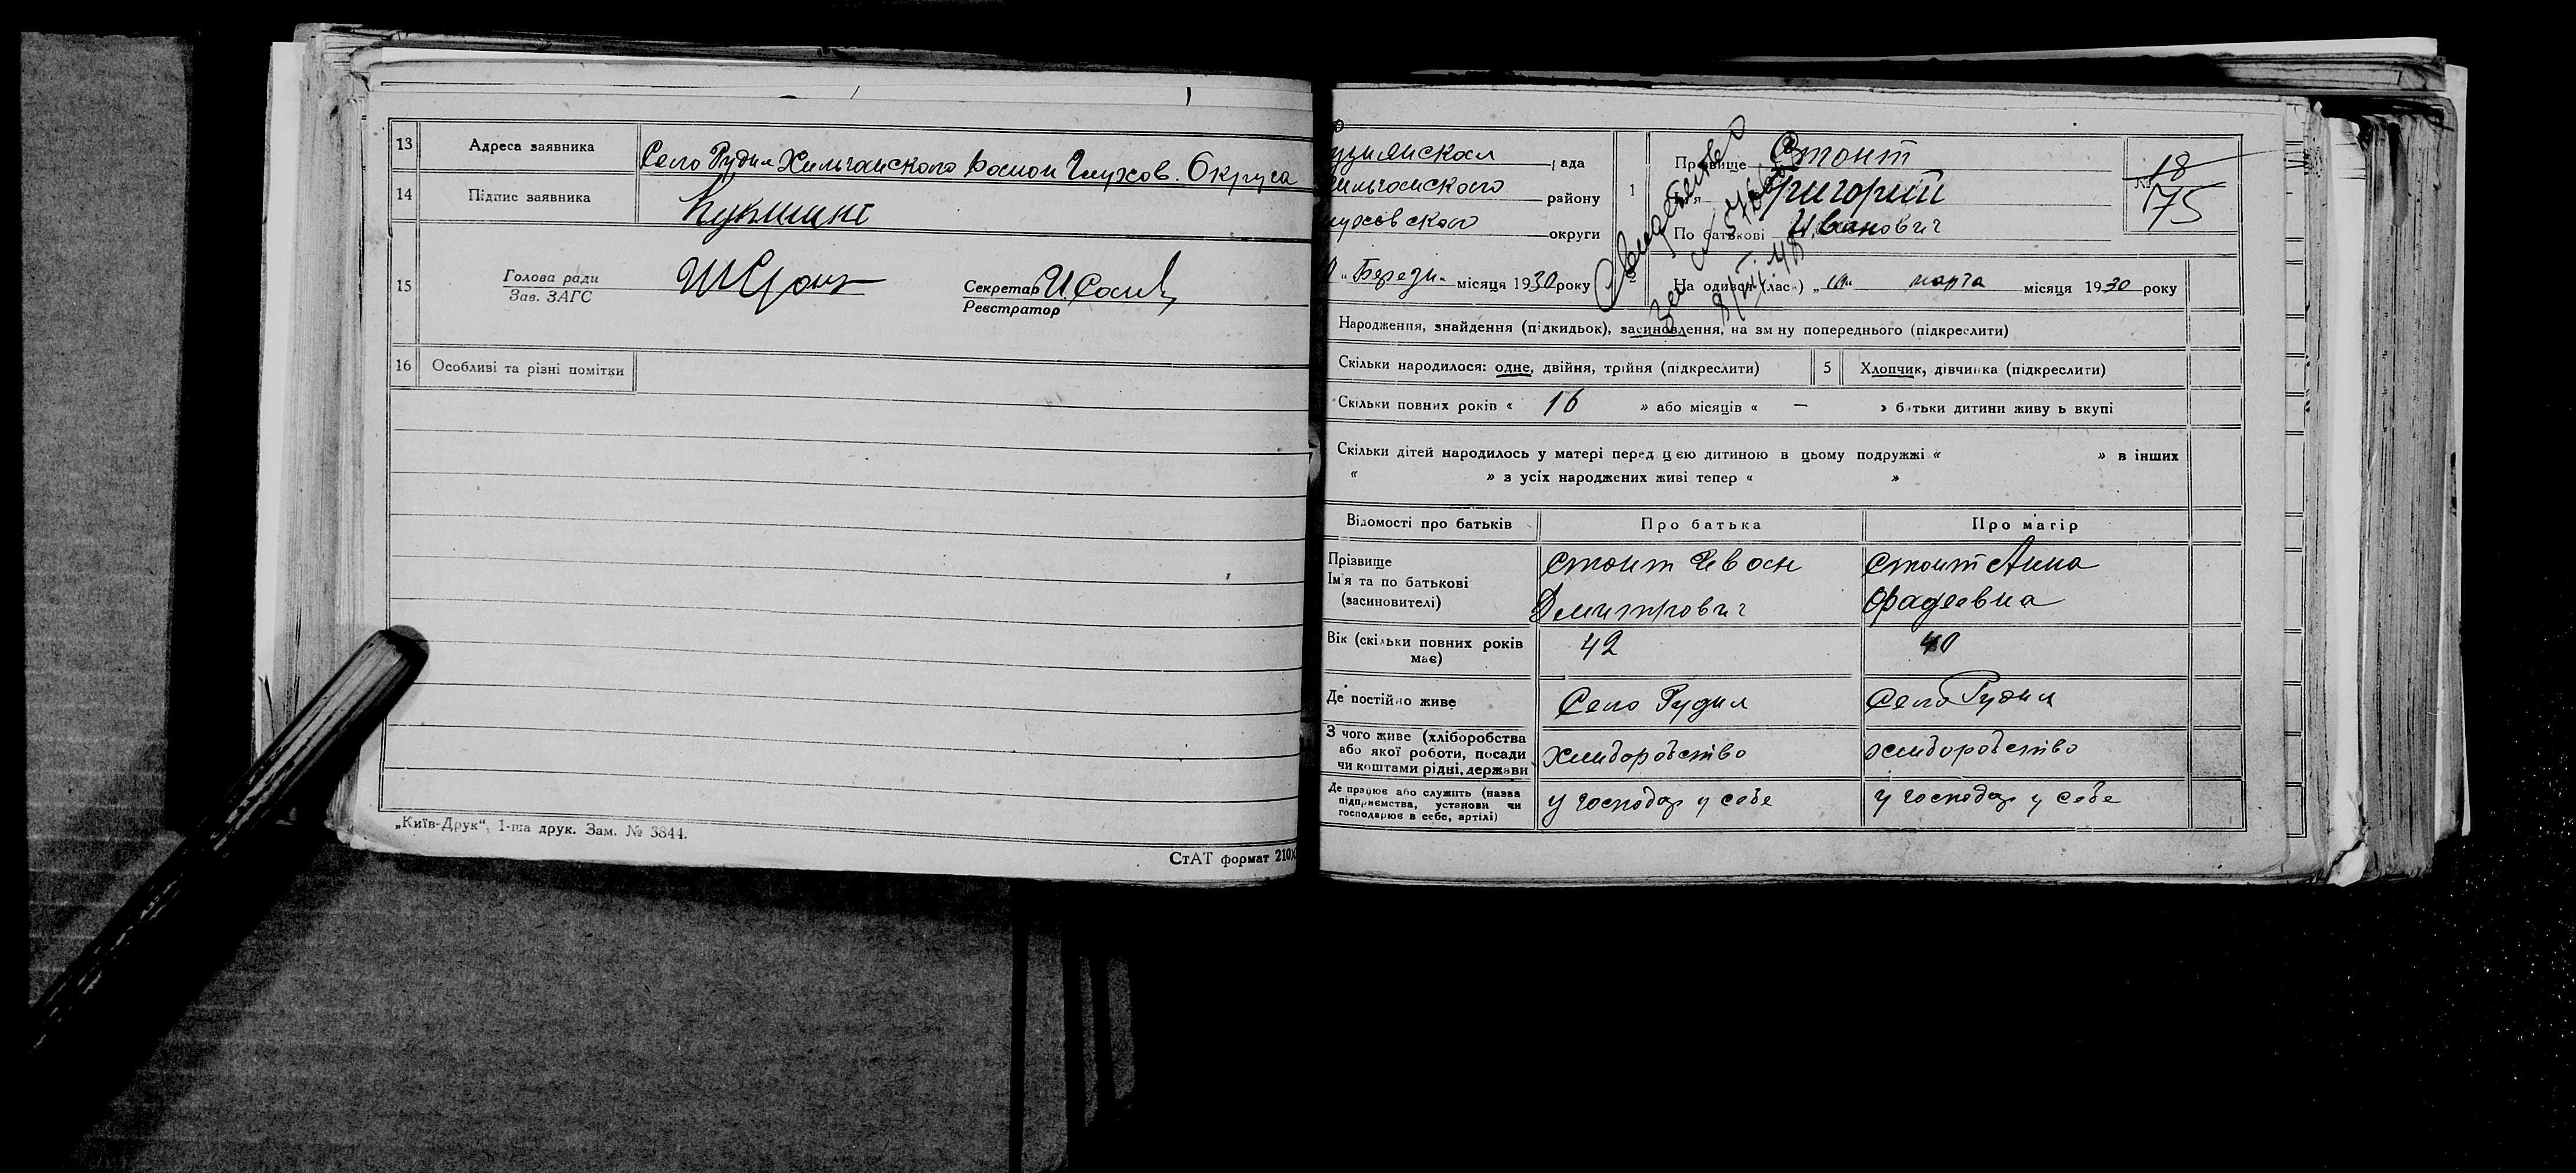 13 Адреса заявника Село Рудня Хильчанского Району Глухов. Округа
14 Підпис заявника
15 Голова ради
Зав. ЗАГС
Секретар
Реєстратор
16 Особливі та різні помітки
„Київ-Друк“, 1-ша друк. Зам. № 3844.
СтАТ формат 210
рада
району
округи
„ Березн. місяця 1930 року
1 Прізвище Стонт
Ім'я Григорий
По батькові Иванович
18
№ 175
На один (лась) „ марта місяця 1930 року
Народження, знайдення (підкидьок), засиновлення, на зміну попереднього (підкреслити)
Скільки народилося: одне, двійня, трійня (підкреслити) 5 Хлопчик, дівчинка (підкреслити)
Скільки повних років « 16 » або місяців « — » батьки дитини живуть вкупі
Скільки дітей народилось у матері перед цією дитиною в цьому подружжі « » в інших
« » з усіх народжених живі тепер « »
Відомості про батьків Про батька Про матір
Прізвище
Ім'я та по батькові
(засиновителі)
Стонт Иван
Дмитрович
Стонт Анна
Фадеевна
Вік (скільки повних років
має)
42 40
Де постійно живе Село Рудня Село Рудня
З чого живе (хліборобства
або якої роботи, посади
чи коштами рідні, держави
хлиборобство хлиборобство
Де працює або служить (назва
підприємства, установи чи
господарює в себе, артілі)
у господар у себе у господар у себе